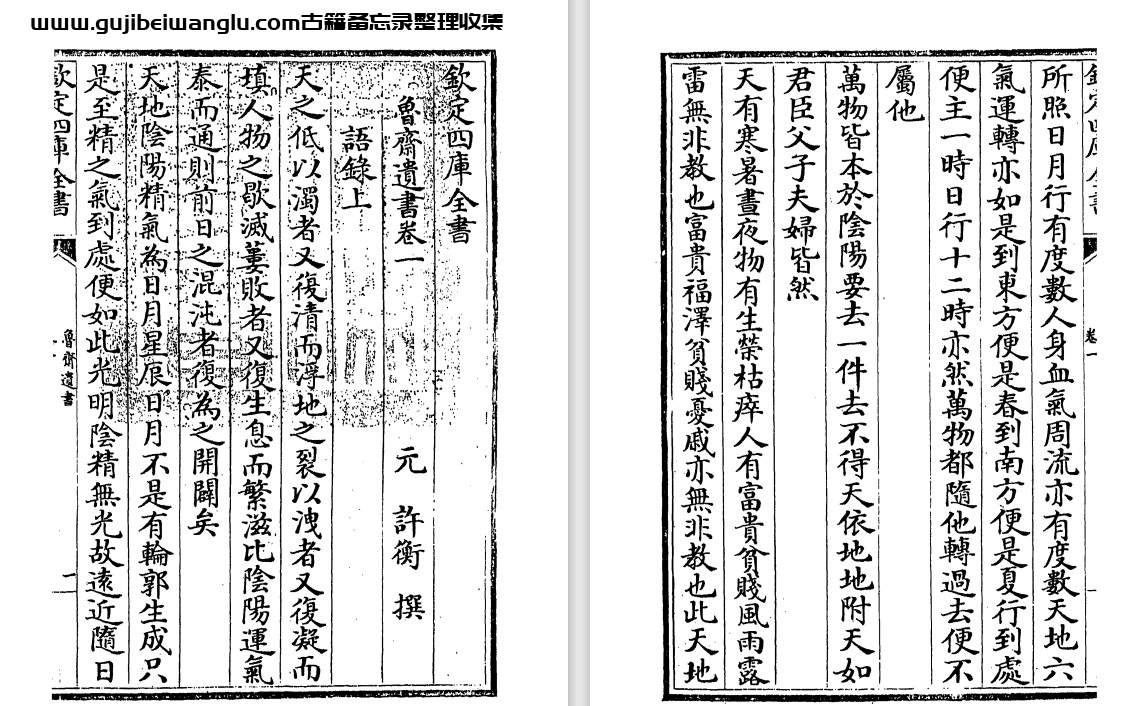 www.gujibeiwanglu.com古籍备忘录整理收集
欽定四庫全書
魯齋遺書卷一
元 許衡 撰
語錄上
天之低以濁者又復清而浮地之裂以洩者又復凝而
填人物之歇滅蔞敗者又復生息而繁滋比陰陽運氣
泰而通則前日之混沌者復為之開闢矣
天地陰陽精氣為日月星辰日月不是有輪郭生成只
是至精之氣到處便如此光明陰精無光故遠近隨日
欽定四庫全書
魯齋遺書
卷一
所照日月行有度數人身血氣周流亦有度數天地六
氣運轉亦如是到東方便是春到南方便是夏行到處
便主一時日行十二時亦然萬物都隨他轉過去便不
屬他
萬物皆本於陰陽要去一件去不得天依地地附天如
君臣父子夫婦皆然
天有寒暑晝夜物有生榮枯瘁人有富貴貧賤風雨露
雷無非教也富貴福澤貧賤憂戚亦無非教也此天地